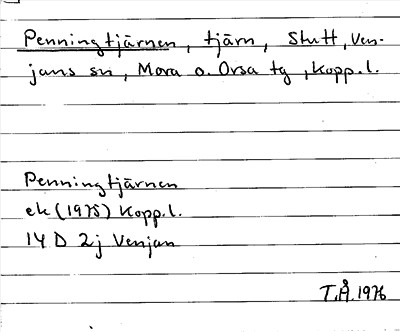 Penningtjärnen, tjärn, Stutt, Ven-
jans sn, Mora o. Orsa tg, Kopp.l.
Penningtjärnen
ek (1975) Kopp.l.
14 D 2j Venjan
T.Å. 1976